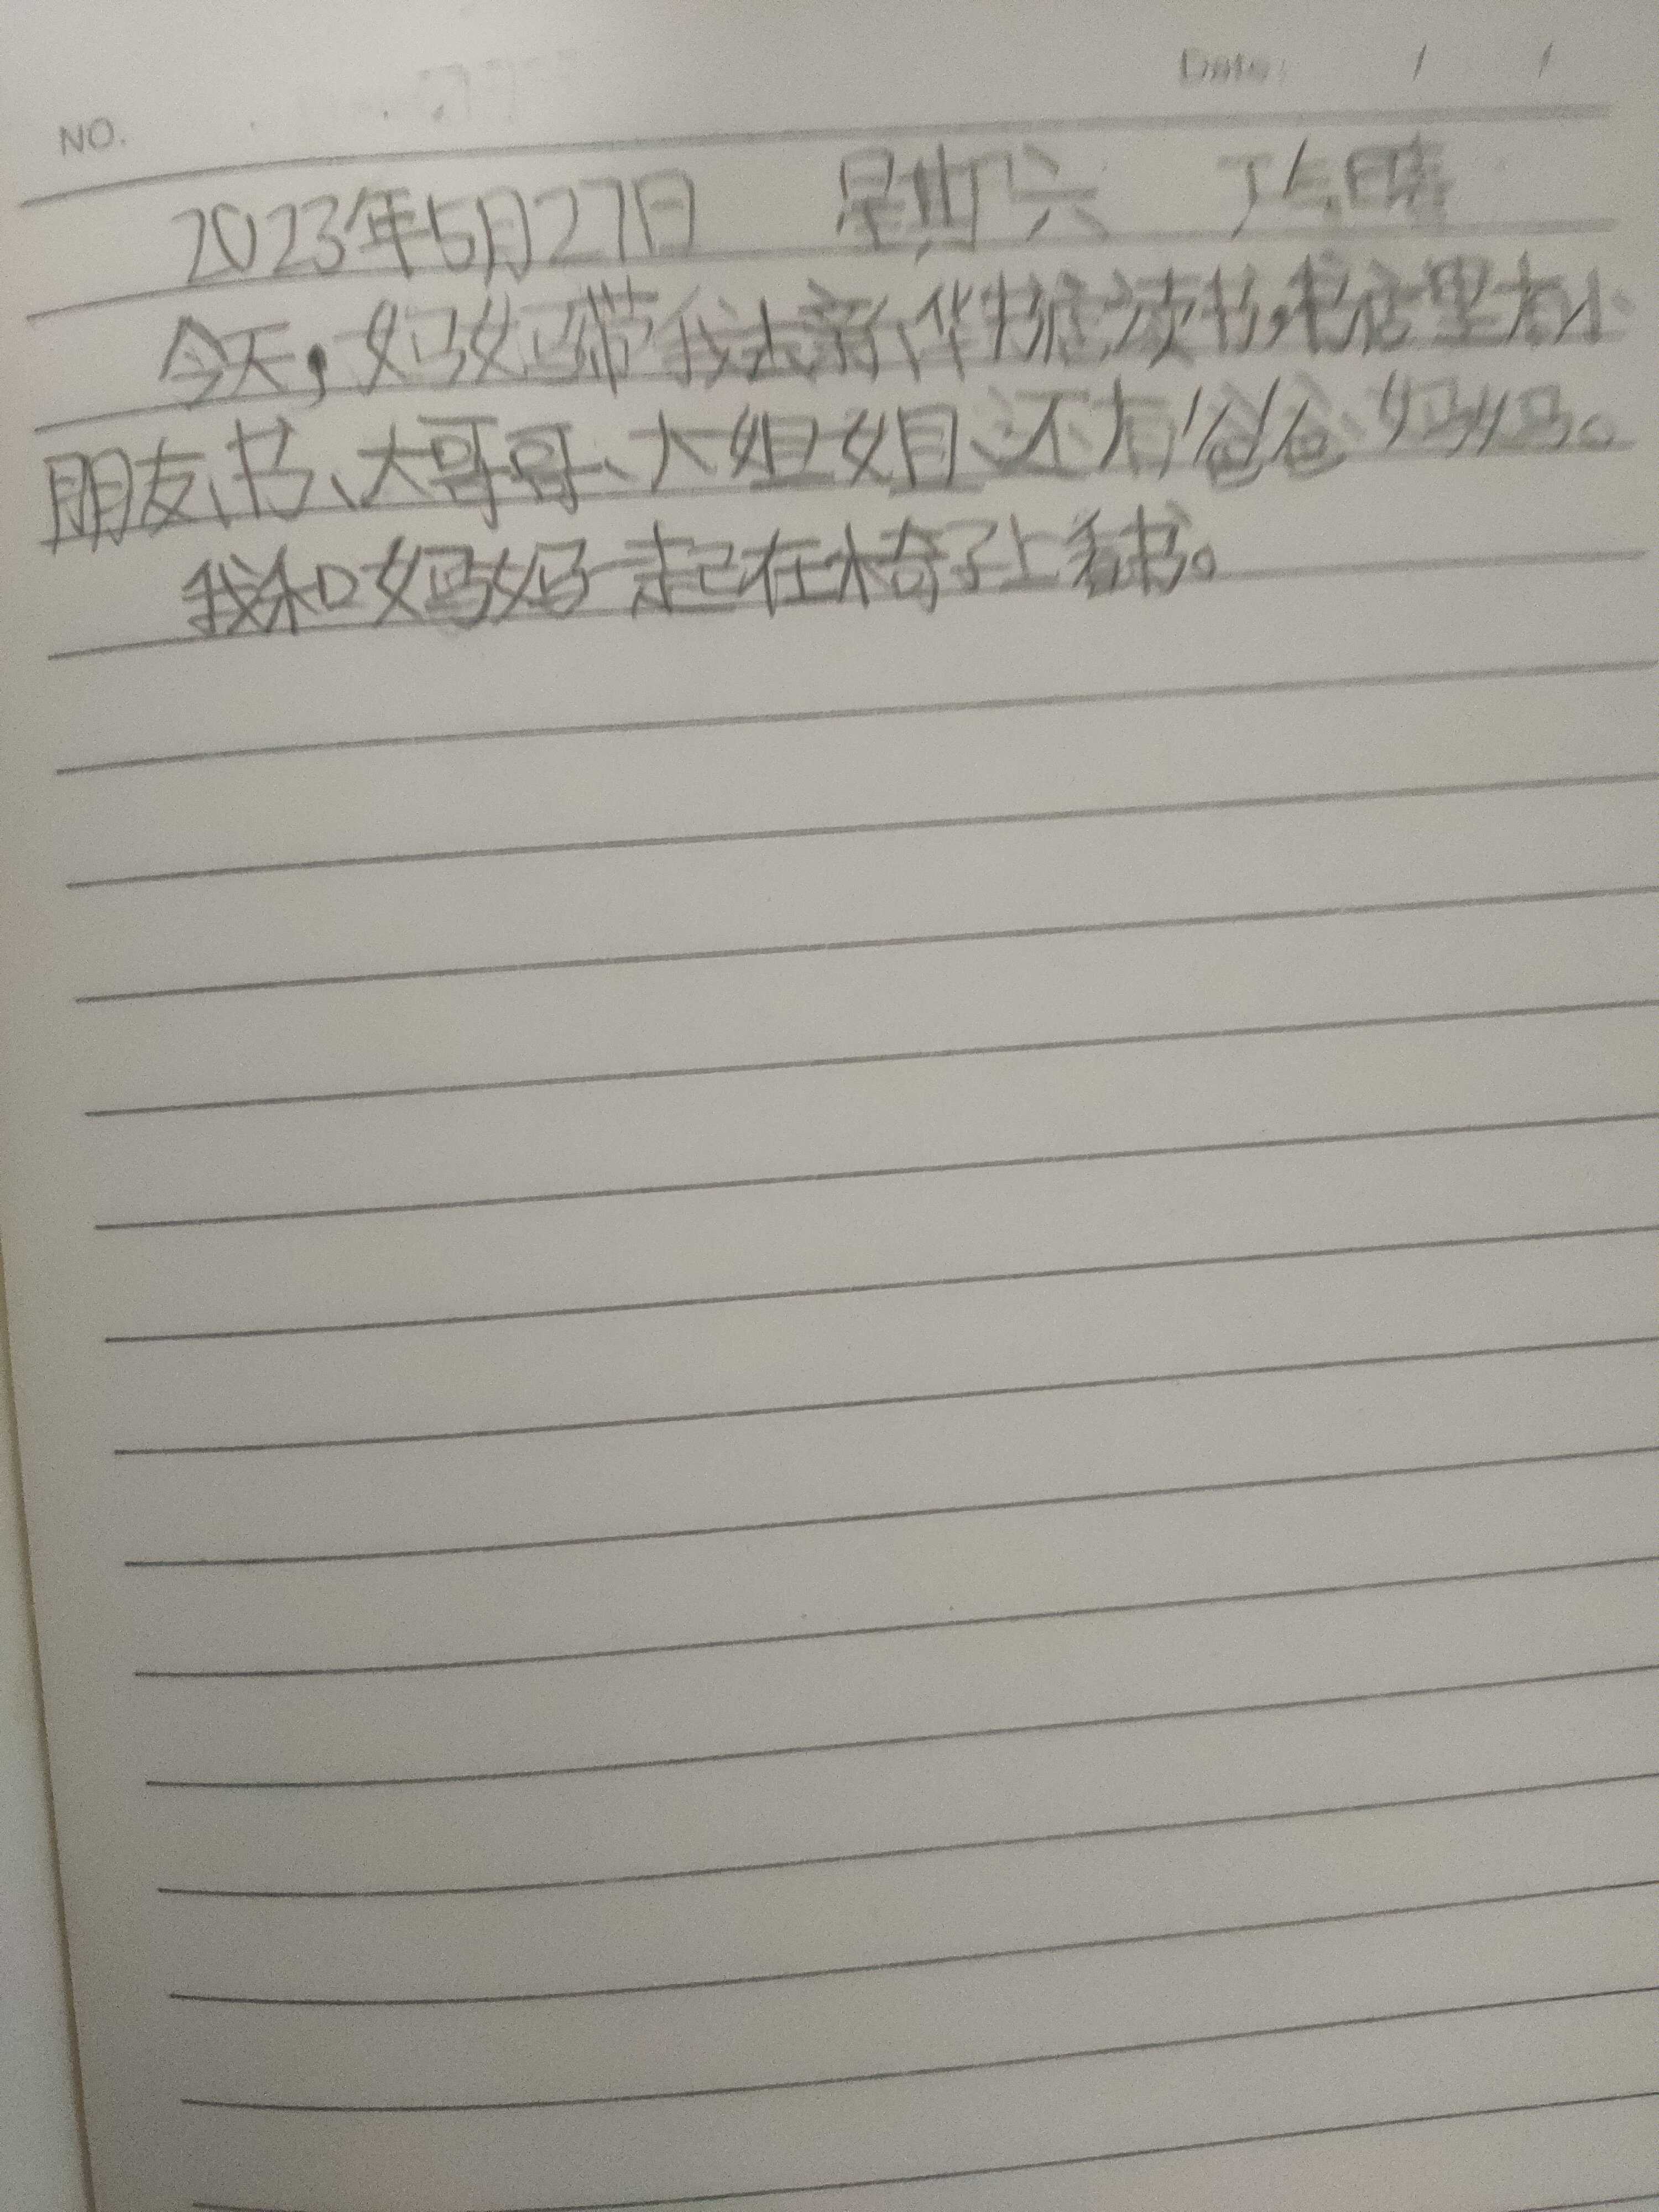 NO. Date: / /
2023年5月27日 星期六 下午晴
今天，妈妈带我去新华书店读书，书店里有小
朋友、书、大哥哥、大姐姐、还有爸爸妈妈。
我和妈妈一起在椅子上看书。